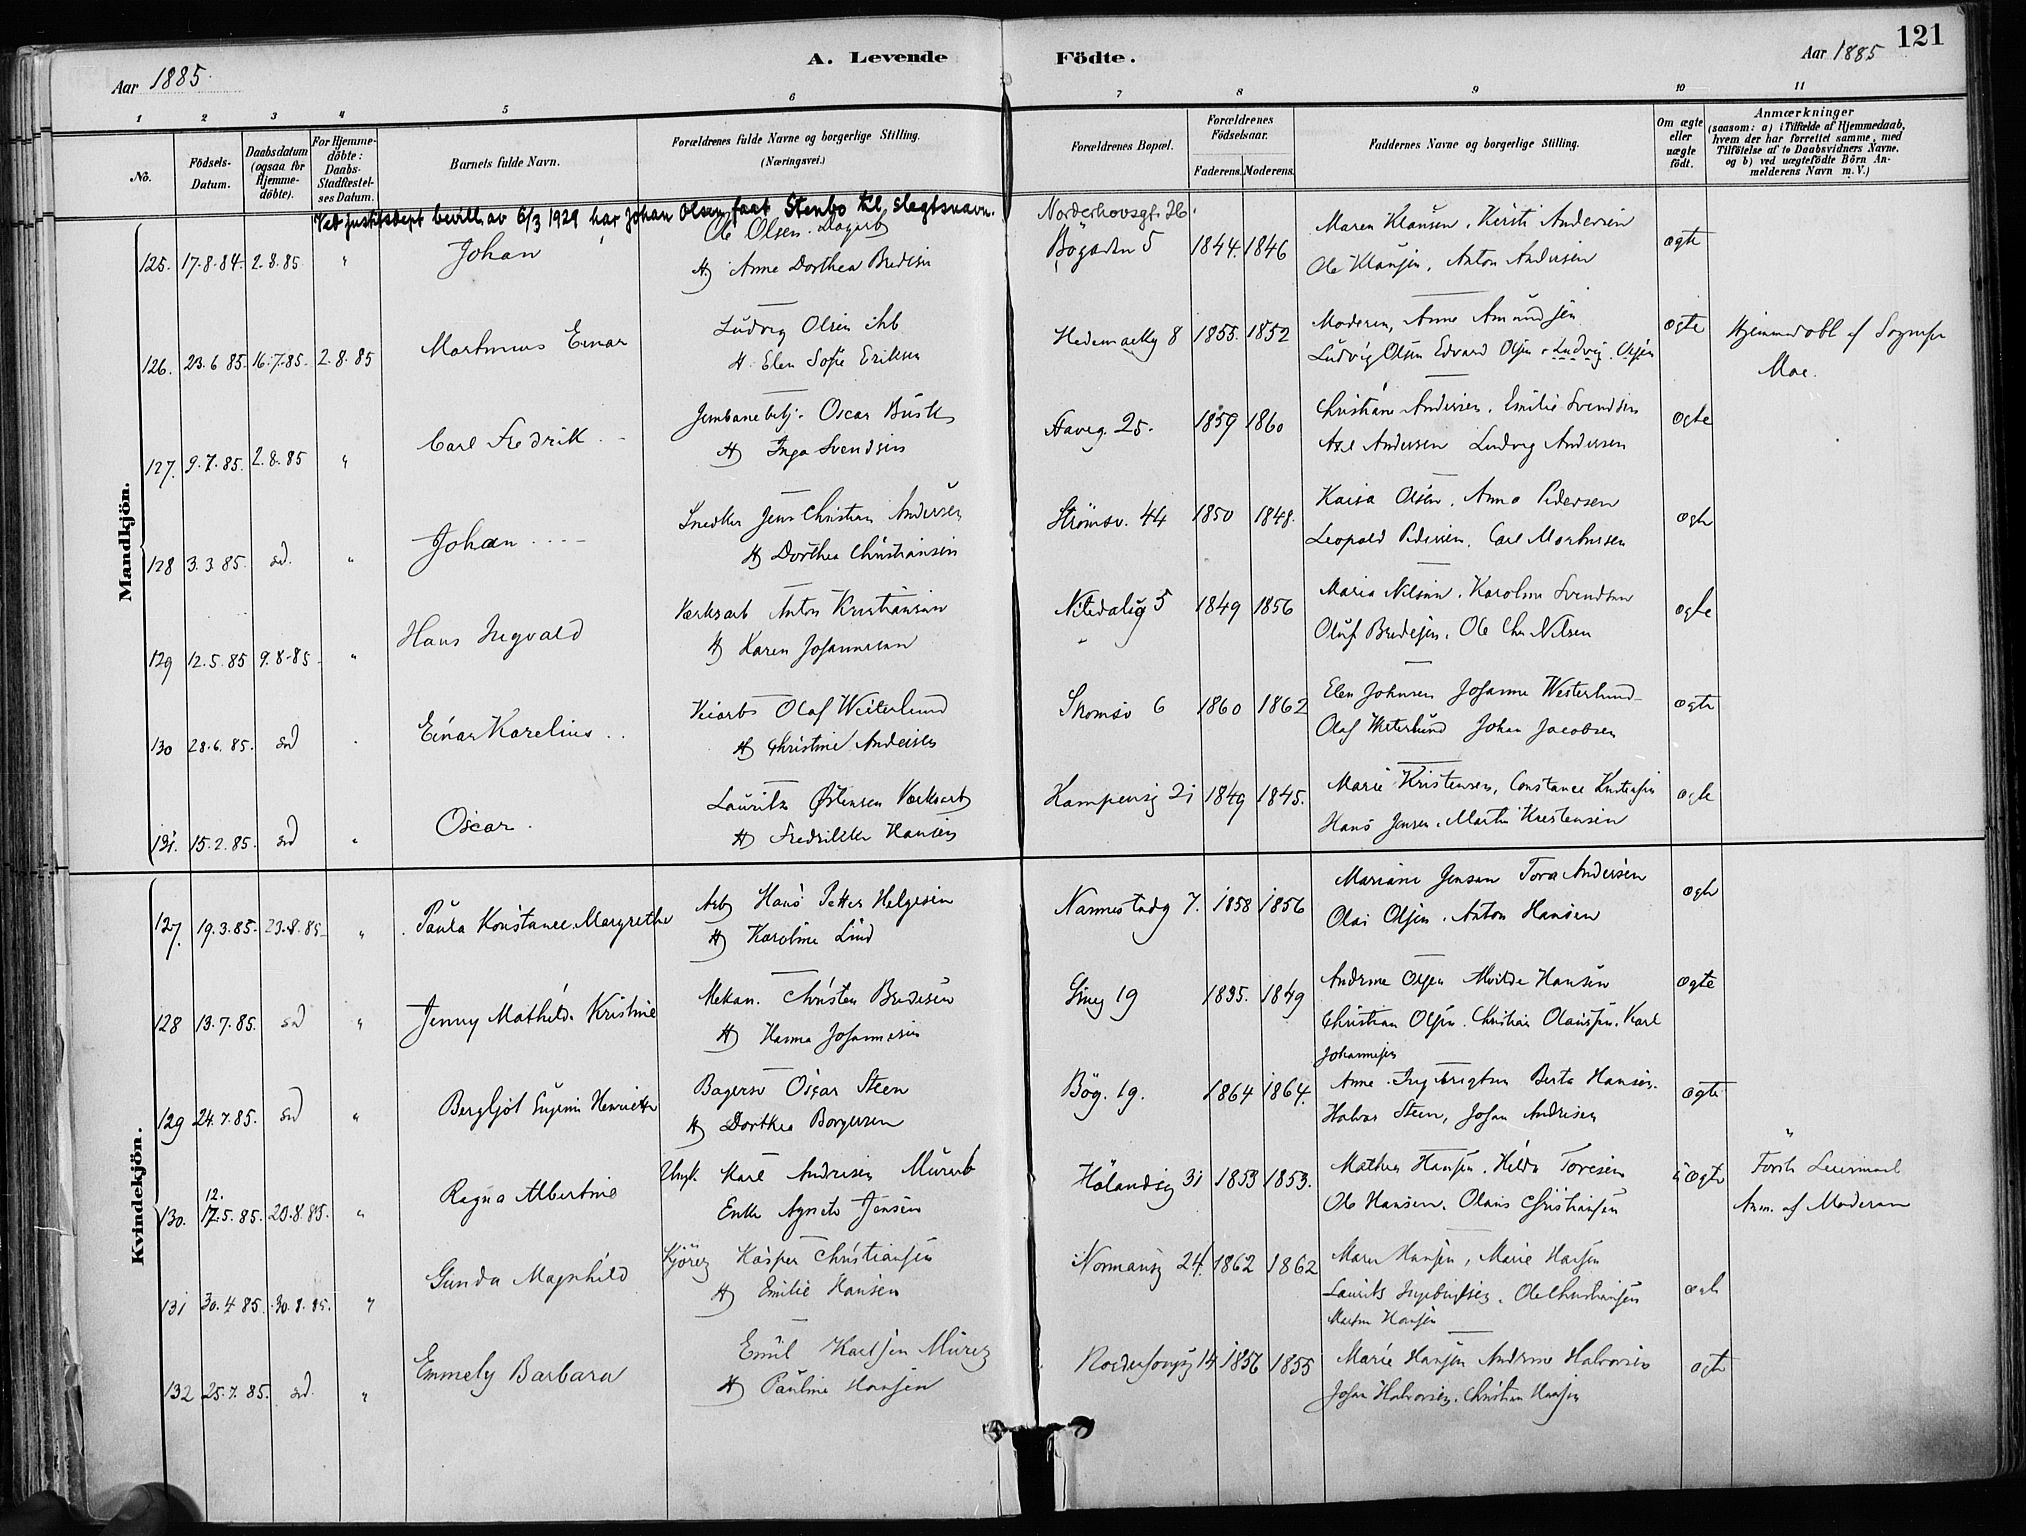 121
Aar 1885.
A. Levende
Födte.
Aar 1885
1 2 3 4 5 6 7 8 9 10 11
No.
Födsels-Datum.
Daabsdatum (ogsaa for Hjemme-döbte).
For Hjemme-döbte: Daabs-Stadfæstel-ses Datum.
Barnets fulde Navn.
Forældrenes fulde Navne og borgerlige Stilling.
(Næringsvei.)
Forældrenes Bopæl.
Forældrenes Födselsaar.
Faderens. Moderens.
Faddernes Navne og borgerlige Stilling.
Om ægte eller uægte födt.
Anmærkninger
(saasom: a) i Tilfælde af Hjemmedaab, hvem der har forrettet samme, med Tilföielse af to Daabsvidners Navne, og b) ved uægtefödte Börn An-melderens Navn m.V.)
Ved justitsdept bevill. av 6/3 1929 har Johan Olsen faat Stenbo til slegtsnavn.
Mandkjön.
125. 17.8.84. 2.8.85 " Johan
Ole Olsen. Dagarb
H Anne Dorthea Bredesen
Norderhovsgt. 26.
Bögaden 5 1844. 1846
Maren Klausen, Kirsti Andersen
Ole Klausen, Anton Andersen
ægte
126. 23.6 85. 16.7.85. 2.8.85 Martinius Einar
Ludvig Olsen
H. Elen Sofie Eriksen
Hedemarksg 8 1855. 1852
Moderen, Anne Amundsen
Ludvig Olsen Edvard Olsen
ægte
Hjemmedøbt af Sognepr
Moe.
127. 9.7.85. 2.8.85 " Carl Fredrik
Jernbanebetj. Oscar Busk
H Inga Svendsen
Aaveg. 25. 1859 1860
Christiane Andersen. Emilie Svendsen
Axel Andersen Ludvig Andersen
ægte
128 3.3.85. sd. " Johan
Snedker Jens Christian Andersen
H Dorthea Christiansen
Strömsv. 44 1850 1848.
Kaisa Olsen. Anna Pedersen
Leopold Pedersen, Carl Martinsen
ægte
129 12.5.85 9.8.85 " Hans Ingvald
Værksarb Anton Kristiansen
H Karen Johannesen
Nitedalsg 5 1849 1856
Maria Nilsen. Karoline Svendsen
Oluf Bredesen. Ole Chr Nilsen
ægte
130 28.6.85. sd Einar Karelius
Olaf Westerlund
H Christine Andersen
Strömsv 6 1860 1862
Elen Johnsen Johanne Westerlund
Olaf Westerlund Johan Jacobsen
ægte
131. 15.2.85. sd " Oscar.
Lauritz Østensen Værksarb
H Fredrikke Hansen
Kampensg 21 1849 1845.
Marie Kristensen, Constance Kristensen
Hans Jensen. Martin Kristensen
ægte
Kvindekjön.
127. 19.3.85. 23.8.85 " Paula Konstance Margrethe
Arb Hans Petter Helgesen
H Karoline Lind
Nannestadg 7. 1858 1856
Mariane Jensen Tora Andersen
Olai Olsen. Anton Hansen
ægte
128 13.7.85. sd " Jenny Mathilde Kristine
Mekan. Christen Bredesen
H Hanna Johannesen
19 1835. 1849
Andrine Olsen Hansen
Christian Olsen. Christian Olaussen. Karl
Johannesen
ægte
129 24.7.85. sd " Bergljot Eugenie Henriette
Bagersv Oscar Steen
H Dorthea Borgersen
Bög. 19. 1864 1864.
Anne Ingebrigtsen Berta Hansen.
Halvor Steen, Johan Andresen
ægte
130. 12.5.85. 20.8.85. " Ragna Albertine
Ungk. Karl Andresen Murarb
Enke Agnete Jensen
Hölandsg 31 1853 1853.
Mathea Hansen. Hilda Toresen
Ole Hansen. Olaus Christiansen
uægte
Första Leiermaal
Anm. af Moderen
131 30.4.85. 30.8.85. " Gunda Magnhild
Kjörer Kasper Christiansen
H Emilie Hansen
Normansg 24. 1862 1862
Maren Hansen, Marie Hansen
Laurits Ingebrigtsen. Ole Christiansen
Martin Hansen
ægte
132 25.7.85. sd. " Emmely Barbara
Emil Karlsen Murer
H Pauline Hansen
Norderhovsg 14 1856 1855
Marie Hansen Andrine Halvorsen
Johan Halvorsen. Christian Hansen
ægte